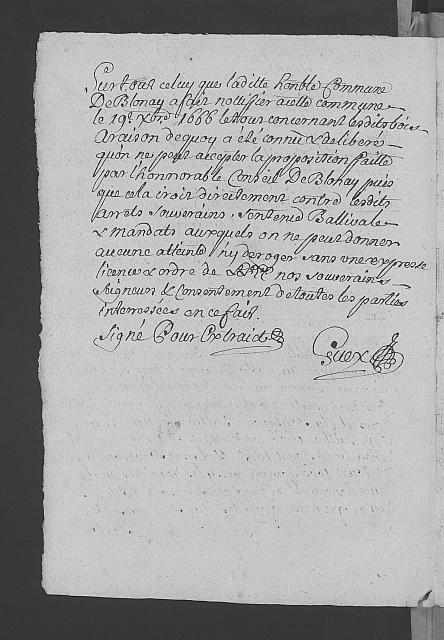 Surtout celuy que ladite honble Commune
De Blonay a fait nottifier a cette commune
le 19e Xbre 1686 le tout concernant lesdits bois
A raison de quoy a été connu & deliberé
quon ne peut accepter la proposition faitte
par l'honnorable Conseil De Blonay puis
que cela iroit directement contre lesdits
arrets souverains, sentence Ballivale
& mandats auxquels on ne peut donner
aucune atteinte n'y deroger sans une expresse
licence & ordre de nos souverains
Seigneurs & Consentement de toutes les parties
interressées en ce fait.
Signé Pour Extraict